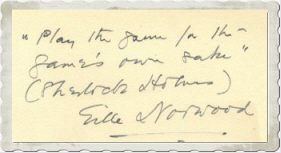 "Play the game for the
game's own sake"
(Sherlock Holmes)
Eille Norwood